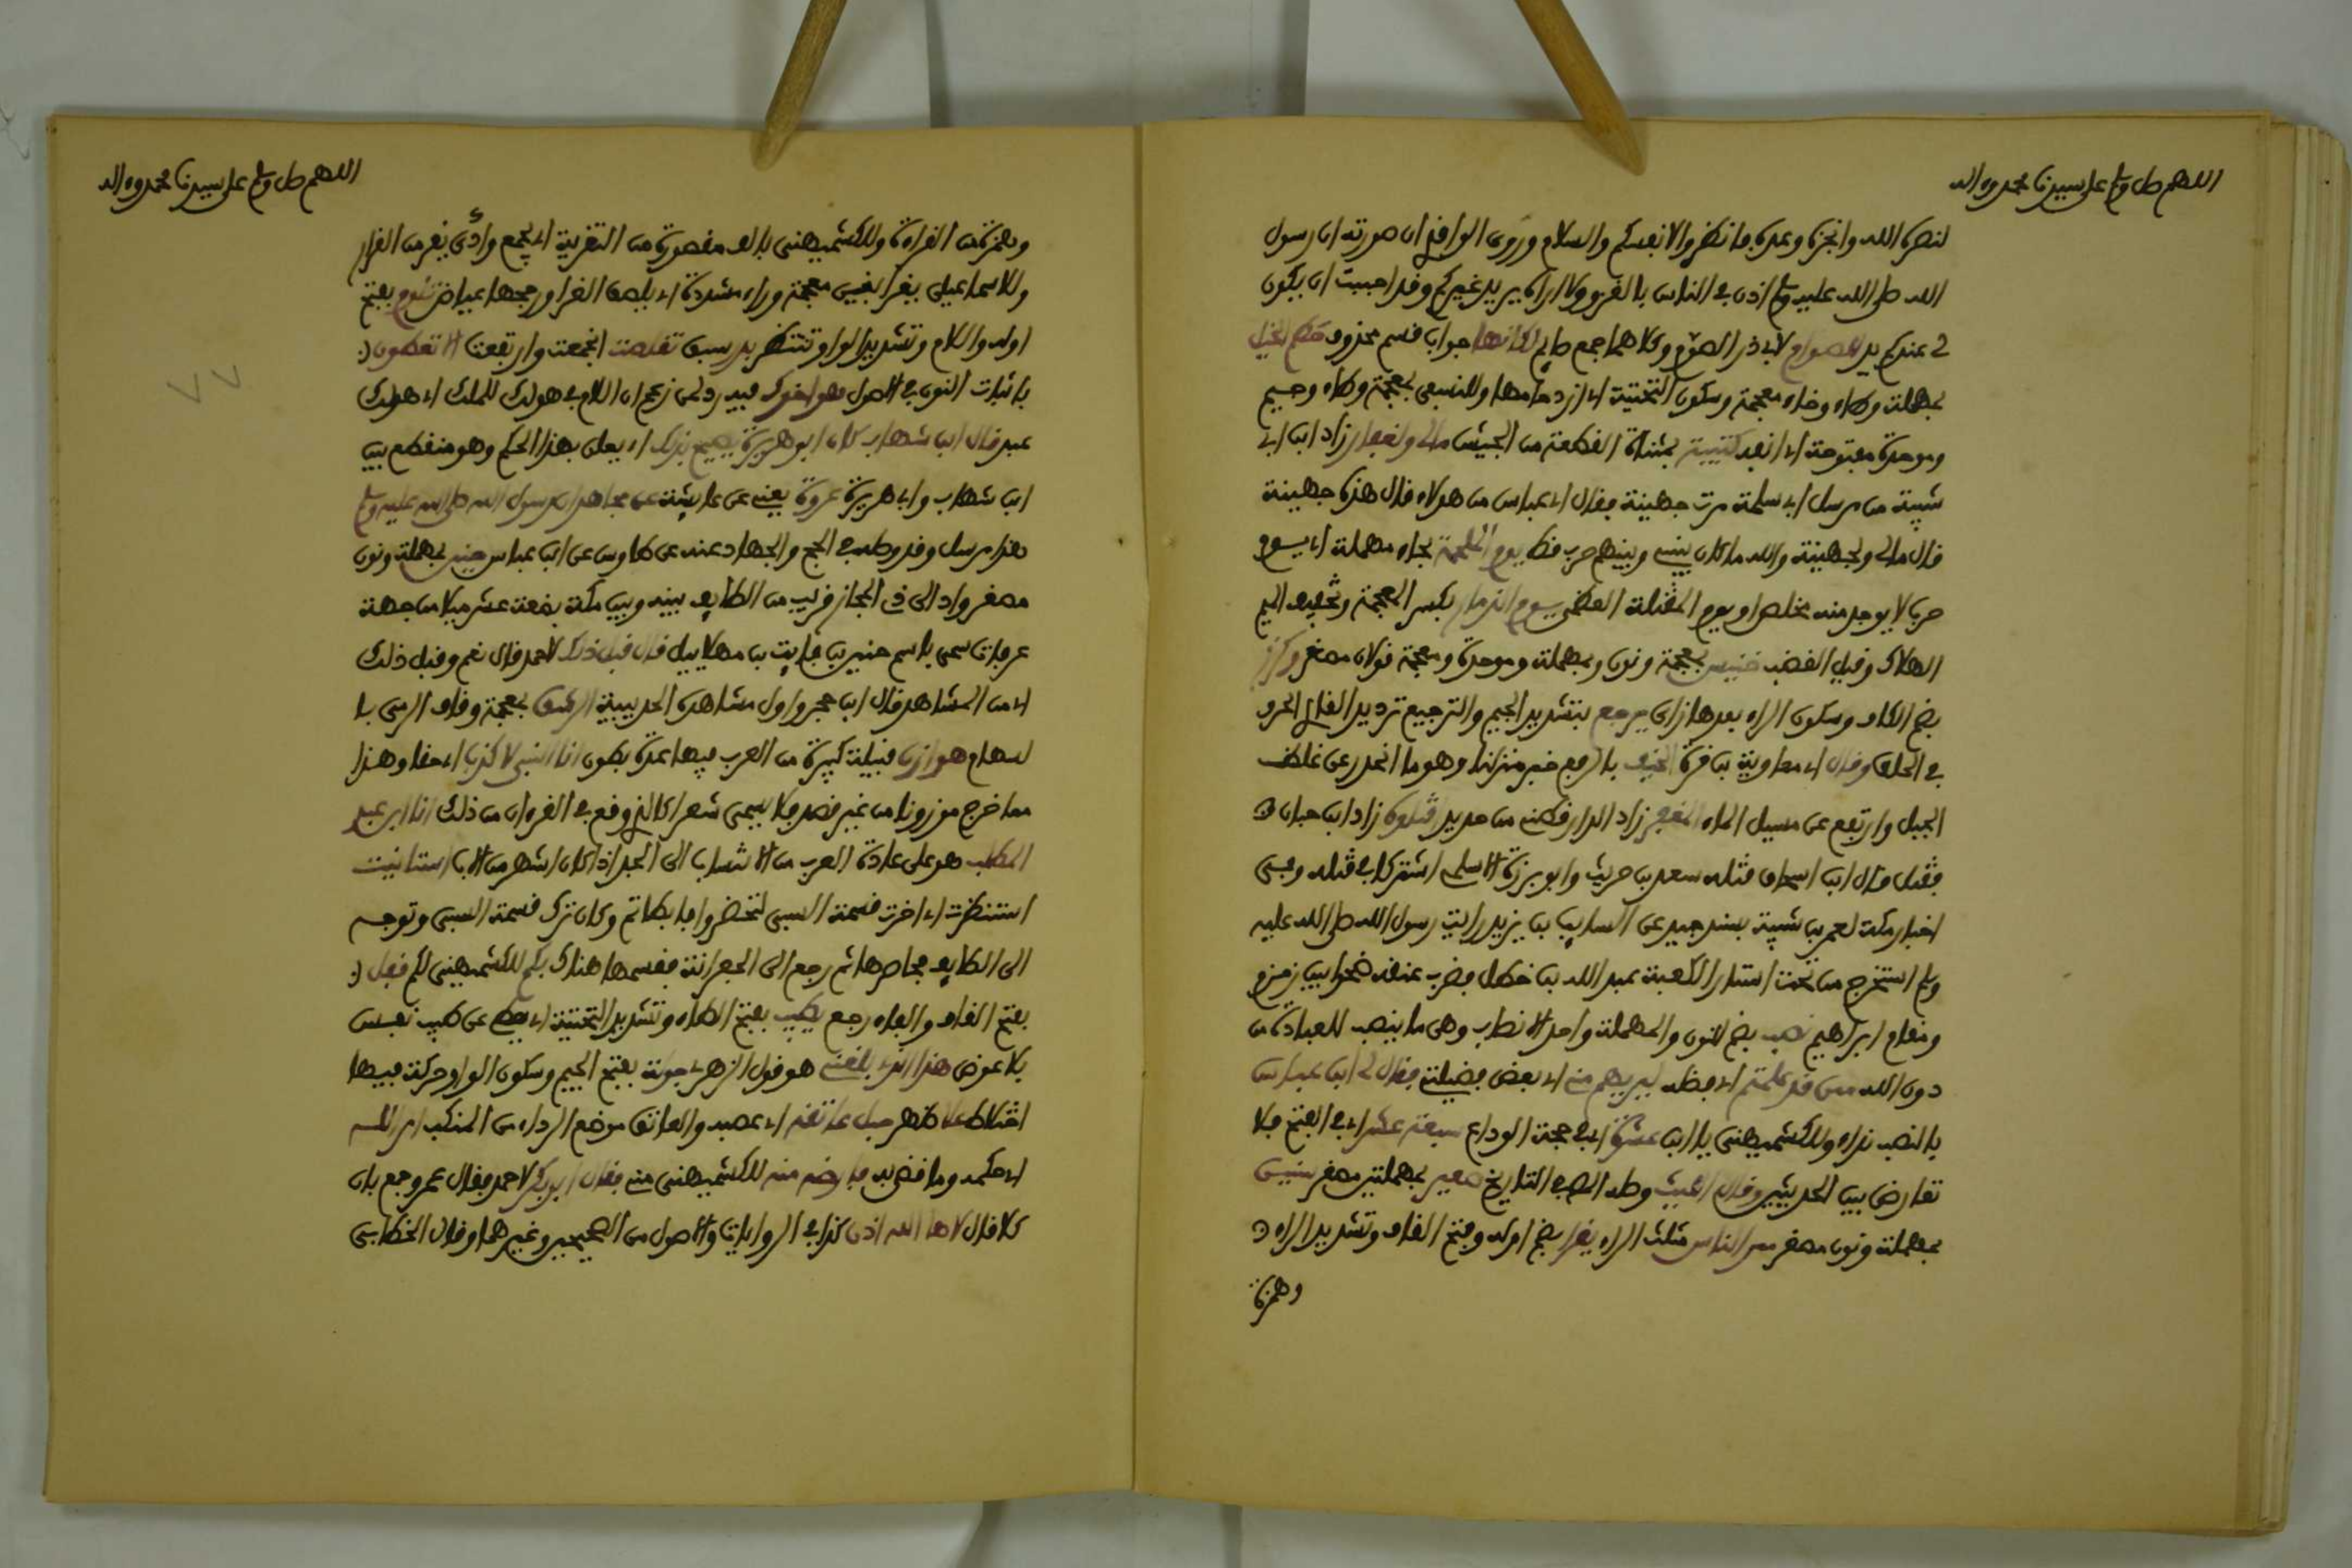 اللهم صل وسلم على سيدنا محمد وءاله
لنصره الله وانجزه وعده فانظروا لانفسكم والسلام وروى الواقدي ان صورته ان رسول
الله صلى الله عليه وسلم اذن في الناس بالغزو ولا اراه يريد غيركم وقد احببت ان يكون
لي عندكم يد للصوام لابي ذر الصوم وكلاهما جمع صايم لكانها جواب قسم محذوف حطم الخيل
بمهملة وطاء وخاء معجمة وسكون التحتية اي ازدحامها وللنسفي بمعجمة وطاء وجيم
وموحدة مفتوحة اي انفه كتيبة بمثناة القطعة من الجيش مالي ولغفار زاد ابن ابي
شيبة من مرسل ابي سلمة مرت جهينة فقال اي عباس من هولاء قال هذه جهينة
قال مالي ولجهينة والله ما كان بيني وبينهم حرب قط يوم الملحمة بحاء مهملة اي يوم
حرب لا يوجد منه مخلص او يوم المقتلة العظمى يوم الذمار بكسر المعجمة وتخفيف الميم
الهلاك وقيل الغضب خنيس بمعجمة ونون وبمهملة وموحدة ومعجمة قولان مصغر وكرز
بضم الكاف وسكون الراء بعدها زاي يرجع بتشديد الجيم والترجيع ترديد القارئ الحرف
في الحلق وقال اي معاوية بن قرة الخيف بالرفع خبر منزلنا وهو ما انحدر عن غلظ
الجبل وارتفع عن مسيل الماء المغفر زاد الدارقطني من حديد اقتلوه زاد ابن حبان
فقتل قال ابن اسحاق قتله سعيد بن حريث وابو برزة الاسلمي اشتركا في قتله وفي
اخبار مكة لعمر بن شبة بسند جيد عن السايب بن يزيد رايت رسول الله صلى الله عليه
وسلم استخرج من تحت استار الكعبة عبد الله بن خطل فضرب عنقه صبرا بين زمزم
ومقام ابراهيم نصب بضم النون والمهملة واحد الانصاب وهي ما ينصب للعبادة من
دون الله ممن قد علمتم اي فضله ليريهم مني اي بعض فضيلتي فقال لي ابن عباس
بالنصب نداء وللكشميهني يا ابن عشرة اي في حجة الوداع سبعة عشر اي في الفتح فلا
تعارض بين الحديثين وقال الليث وصله المص في التاريخ صعير بمهملتين مصغر سنين
بمهملة ونون مصغر ممر الناس مثلث الراء يقرا بضم اوله وفتح القاف وتشديد الراء
وهمزة
اللهم صل وسلم على سيدنا محمد وءاله
وبهمزة من القراءة وللكشميهني بالف مقصورة من التقرية اي يجمع واءى يقر من القرار
وللاسماعيلي يغرا بغين معجمة وراء مشددة اي يلصق الغرا ورجحها عياض تلوم بفتح
اوله واللام وتشديد الواو تنتظر بدر سبق تقلصت انجمعت وارتفعت الا تغطون
باثبات النون في الاصل هو اخوك فيه رد لمن زعم ان اللام في هو لك للملك اي هو لك
عبد قال ابن شهاب كان ابو هريرة يصيح بذلك اي يعلن بهذا الحكم وهو منقطع بين
ابن شهاب وابي هريرة عروة يعني عن عايشة عن مجاهد ان رسول الله صلى الله عليه وسلم
هذا مرسل وقد وصله في الحج والجهاد عنه عن طاوس عن ابن عباس حنين بمهملة ونون
مصغر واد الى ذي المجاز قريب من الطايف بينه وبين مكة بضعة عشر ميلا من جهة
عرفات سمي باسم حنين بن قابت بن مهلاييل قال قبل ذلك لاحمد قال نعم وقبل ذلك
اي من المشاهد قال ابن حجر واول مشاهده الحديبية الرشق بمعجمة وقاف الرمي با
لسهام هوازن قبيلة كبيرة من العرب فيها عدة بطون انا النبي لا كذب اي حقا وهذا
مما خرج موزونا من غير قصد فلا يسمى شعرا كالذي وقع في القرءان من ذلك انا ابن عبد
المطلب هو على عادة العرب من الانتساب الى الجد اذا كان اشهر من الاب استانيت
استنظرت اي اخرت قسمة السبي لتحضروا فابطاتم وكان ترك قسمة السبي وتوجه
الى الطايف فحاصرها ثم رجع الى الجعرانة فقسمها هناك بكم للكشميهني لكم قفل
بفتح القاف والفاء رجع يطيب بفتح الطاء وتشديد التحتية اي يعطي عن طيب نفس
بلا عوض هذا الذي بلغني هو قول الزهري جولة بفتح الجيم وسكون الواو حركة فيها
اختلاط علا ظهر حبل عاتقه اي عصبه والعاتق موضع الرداء من المنكب امر الله
اي حكمه وما قضى به فارضه منه للكشميهني مني فقال ابو بكر لاحمد فقال عمر وجمع بان
كلا قال لاها الله اذن كذا في الروايات والاصول من الصحيحين وغيرهما وقال الخطابي